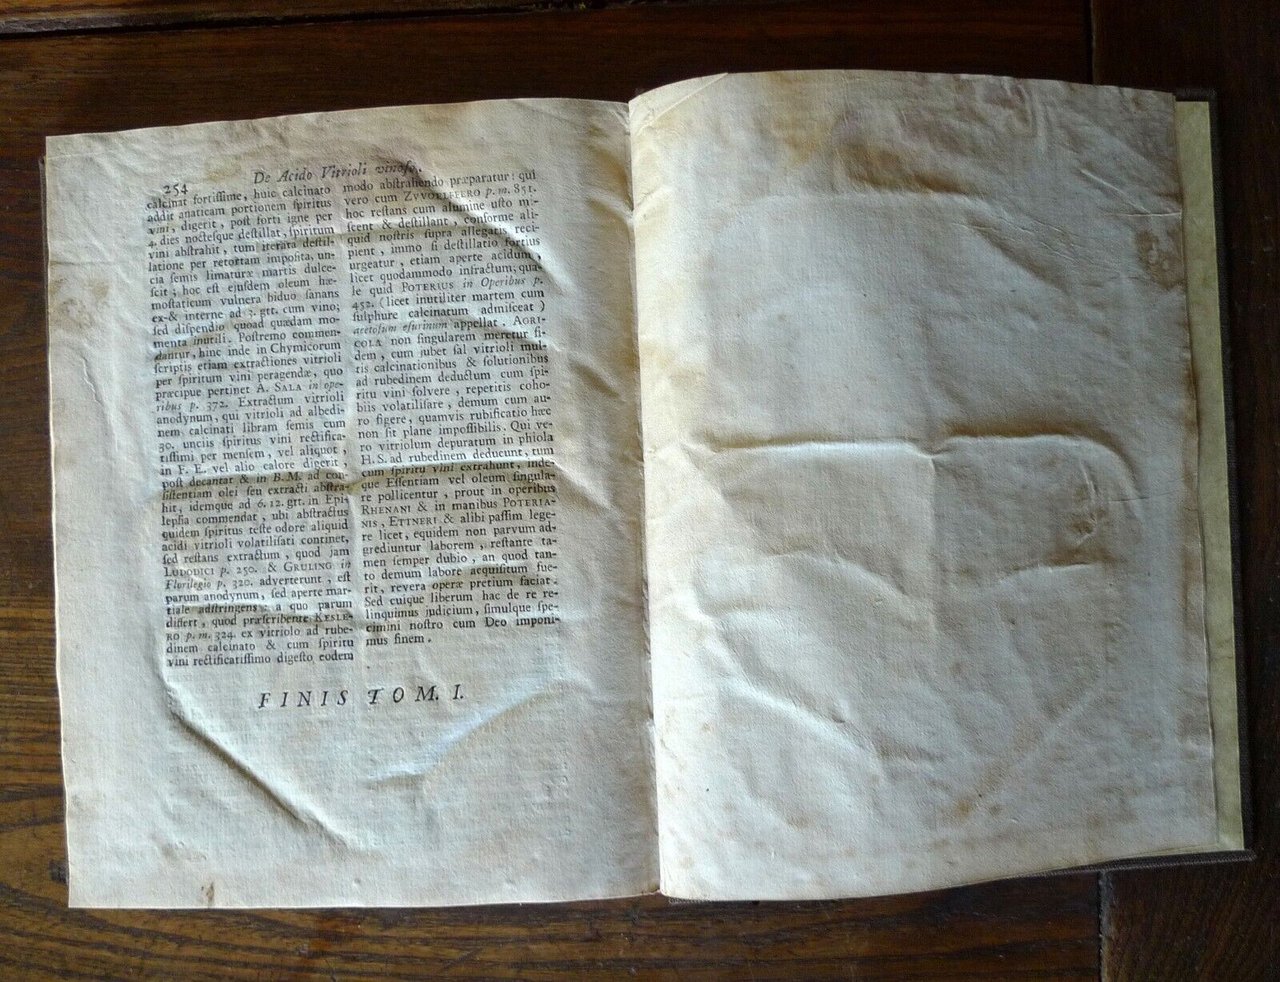 254
De Acido Vitrioli vinoso.
calcinat fortiſſime, huic calcinato
addit anaticam portionem ſpiritus
vini, digerit, poſt forti igne per
4. dies noctesque deſtillat, ſpiritum
vini abſtrahit, tum iterata deſtil-
latione per retortam impoſita, un-
cia ſemis limaturæ martis dulce-
ſcit; hoc eſt ejuſdem oleum hæ-
moſtaticum vulnera biduo ſanans
ex-& interne ad 3. gtt. cum vino,
ſed diſpendio quoad quædam mo-
menta inutili. Poſtremo commen-
dantur, hinc inde in Chymicorum
ſcriptis etiam extractiones vitrioli
per ſpiritum vini peragendæ, quo
præcipue pertinet A. SALA in ope-
ribus p. 372. Extractum vitrioli
anodynum, qui vitrioli ad albedi-
nem calcinati libram ſemis cum
30. unciis ſpiritus vini rectifica-
tiſſimi per menſem, vel aliquot,
in F. E. vel alio calore digerit,
poſt decantat & in B. M. ad con-
ſiſtentiam olei ſeu extracti abſtra-
hit, idemque ad 6. 12. gtt. in Epi-
lepſia commendat, ubi abſtractus
quidem ſpiritus teſte odore aliquid
acidi vitrioli volatiliſati continet,
ſed reſtans extractum, quod jam
LUDOIICI p. 250. & GRULING in
Florilegio p. 320. adverterunt, eſt
parum anodynum, ſed aperte mar-
tiale adſtringens: a quo parum
differt, quod præſcribente KESLE-
RO p. m. 324. ex vitriolo ad rube-
dinem calcinato & cum ſpiritu
vini rectificatiſſimo digeſto eodem
modo abſtrahendo præparatur: qui
vero cum ZVVOELFFERO p. m. 851.
hoc reſtans cum alumine uſto mi-
ſcent & deſtillant, conforme ali-
quid noſtris ſupra allegatis reci-
pient, immo ſi deſtillatio fortius
urgeatur, etiam aperte acidum,
licet quodammodo infractum; qua-
le quid POTERIUS in Operibus p.
452. (licet inutiliter martem cum
ſulphure calcinatum admiſceat)
acetoſum eſurinum appellat. AGRI-
COLA non ſingularem meretur fi-
dem, cum jubet ſal vitrioli mul-
tis calcinationibus & ſolutionibus
ad rubedinem deductum cum ſpi-
ritu vini ſolvere, repetitis coho-
biis volatiliſare, demum cum au-
ro figere, quamvis rubificatio hæc
non ſit plane impoſſibilis. Qui ve-
ro vitriolum depuratum in phiola
H. S. ad rubedinem deducunt, tum
cum ſpiritu vini extrahunt, inde-
que Eſſentiam vel oleum ſingula-
re pollicentur, prout in operibus
RHENANI & in manibus POTERIA-
NIS, ETTNERI & alibi paſſim lege-
re licet, equidem non parvum ad-
grediuntur laborem, reſtante ta-
men ſemper dubio, an quod tan-
to demum labore acquiſitum fue-
rit, revera operæ pretium faciat.
Sed cuique liberum hac de re re-
linquimus judicium, ſimulque ſpe-
cimini noſtro cum Deo imponi-
mus finem.
FINIS TOM. I.